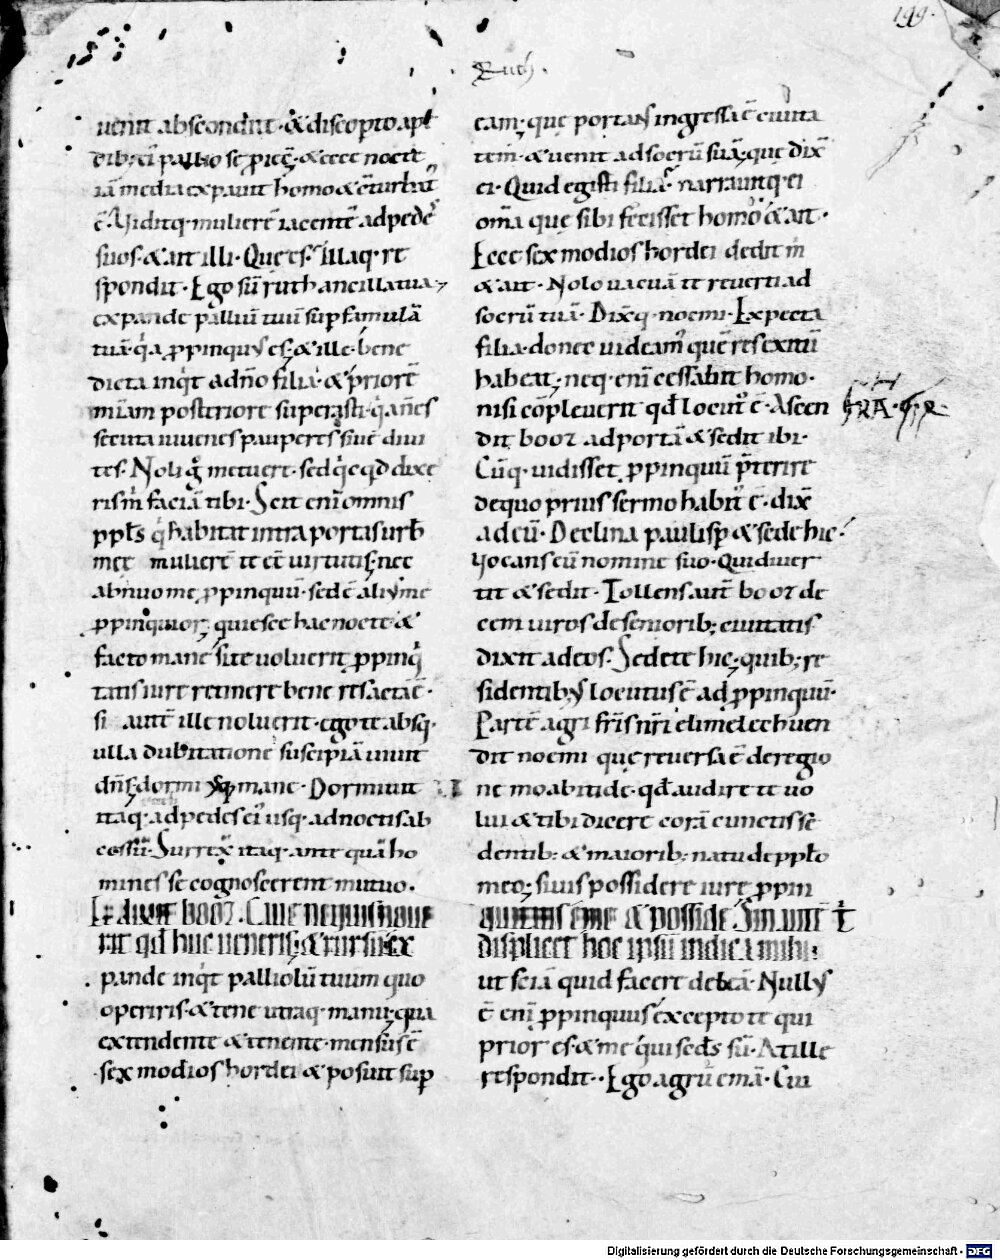 199.
Ruth.
uenit abscondite · & discopto apł
dib; ei pallio se ꝓiec̄ · & ecce nocte
iā media expauit homo & c̄turbat᷒
ē · Viditq· mulierē iacentē ad pedes
suos · & ait illi · Que es · Illaq· re
spondit · Ego sū ruth ancilla tua ·
expande palliū tuū sup famulā
tuā · q̇a ꝓpinquus es · & ille · bene
dicta inqt adn̄o filia · & priorē
mīam posteriore superasti · q̇a n̄ es
secuta iuuenes pauperes siue diui
tes · Noli g̊ metuere · sed q̇cqd dixe
ris m̄ faciā tibi · Scit enī omnis
ppl̄s q̇ habitat intra portas urb
mee mulierē te ēē uirtutis; nec
abnuo me ꝓpinquū · sed ē alius me
ꝓpinquior; quiesce hac nocte &
facto mane si te uoluerit ꝓpinq̇
tatis iure retinere bene res acta ē ·
si autē ille noluerit · ego te absq·
ulla dubitatione suscipiā uiuit
dn̄s; dormi usq· mane · Dormiuit
itaq· ad pedes ei᷒ usq· ad noctis ab
cessū · Surrex̄ itaq· ante quā ho
mines se cognoscerent mutuo ·
Et dixit booz · Caue ne quis noue
rit qđ huc ueneris; & rursū ex
pande inqt palliolū tuum quo
operiris · & tene utraq· manu; qua
extendente & tenente · mensus ē
sex modios hordei & posuit sup
eam; que portans ingressa ē ciuita
tem̄ · & uenit ad socrū suā; que dix̄
ei · Quid egisti filia · narrauitq· ei
om̄a que sibi fecisset homo & ait ·
Ecce sex modios hordei dedit m̄
& ait · Nolo uacuā te reuerti ad
socrū tuā · Dix̄q· noemi · Expecta
filia · donec uideam᷒ quē res exitū
habeat; neq· enī cessabit homo ·
nisi cōpleuerit qđ locut᷒ ē · Ascen
dit booz ad portā & sedit ibi ·
Cūq· uidisset ꝓpinquū p̄terire
de quo prius sermo habit᷒ ē · dix̄
ad eū · Declina paulisp & sede hic ·
Vocans eū nomine suo · Qui diuer
tit & sedit · Tollens aut̄ booz de
cem uiros de seniorib; ciuitatis
dixit ad eos · Sedete hic; quib; re
sidentibus locutus ē ad ꝓpinquū ·
Partē agri fr̄is nr̄i elimelech uen
dit noemi que reuersa ē de regio
ne moabitide · qđ audire te uo
lui & tibi dicere corā cunctis se
dentib; & maiorib; natu de pplo
meo; si uis possidere iure ꝓpin
quitatis eme & posside · Sin aut̄ t̄
displicet hoc ipsū indica mihi ·
ut sciā quid facere debeā · Nullus
ē enī ꝓpinquus excepto te qui
prior es · & me qui seđs sū · At ille
respondit · Ego agrū emā · Cui
Digitalisierung gefördert durch die Deutsche Forschungsgemeinschaft - DFG